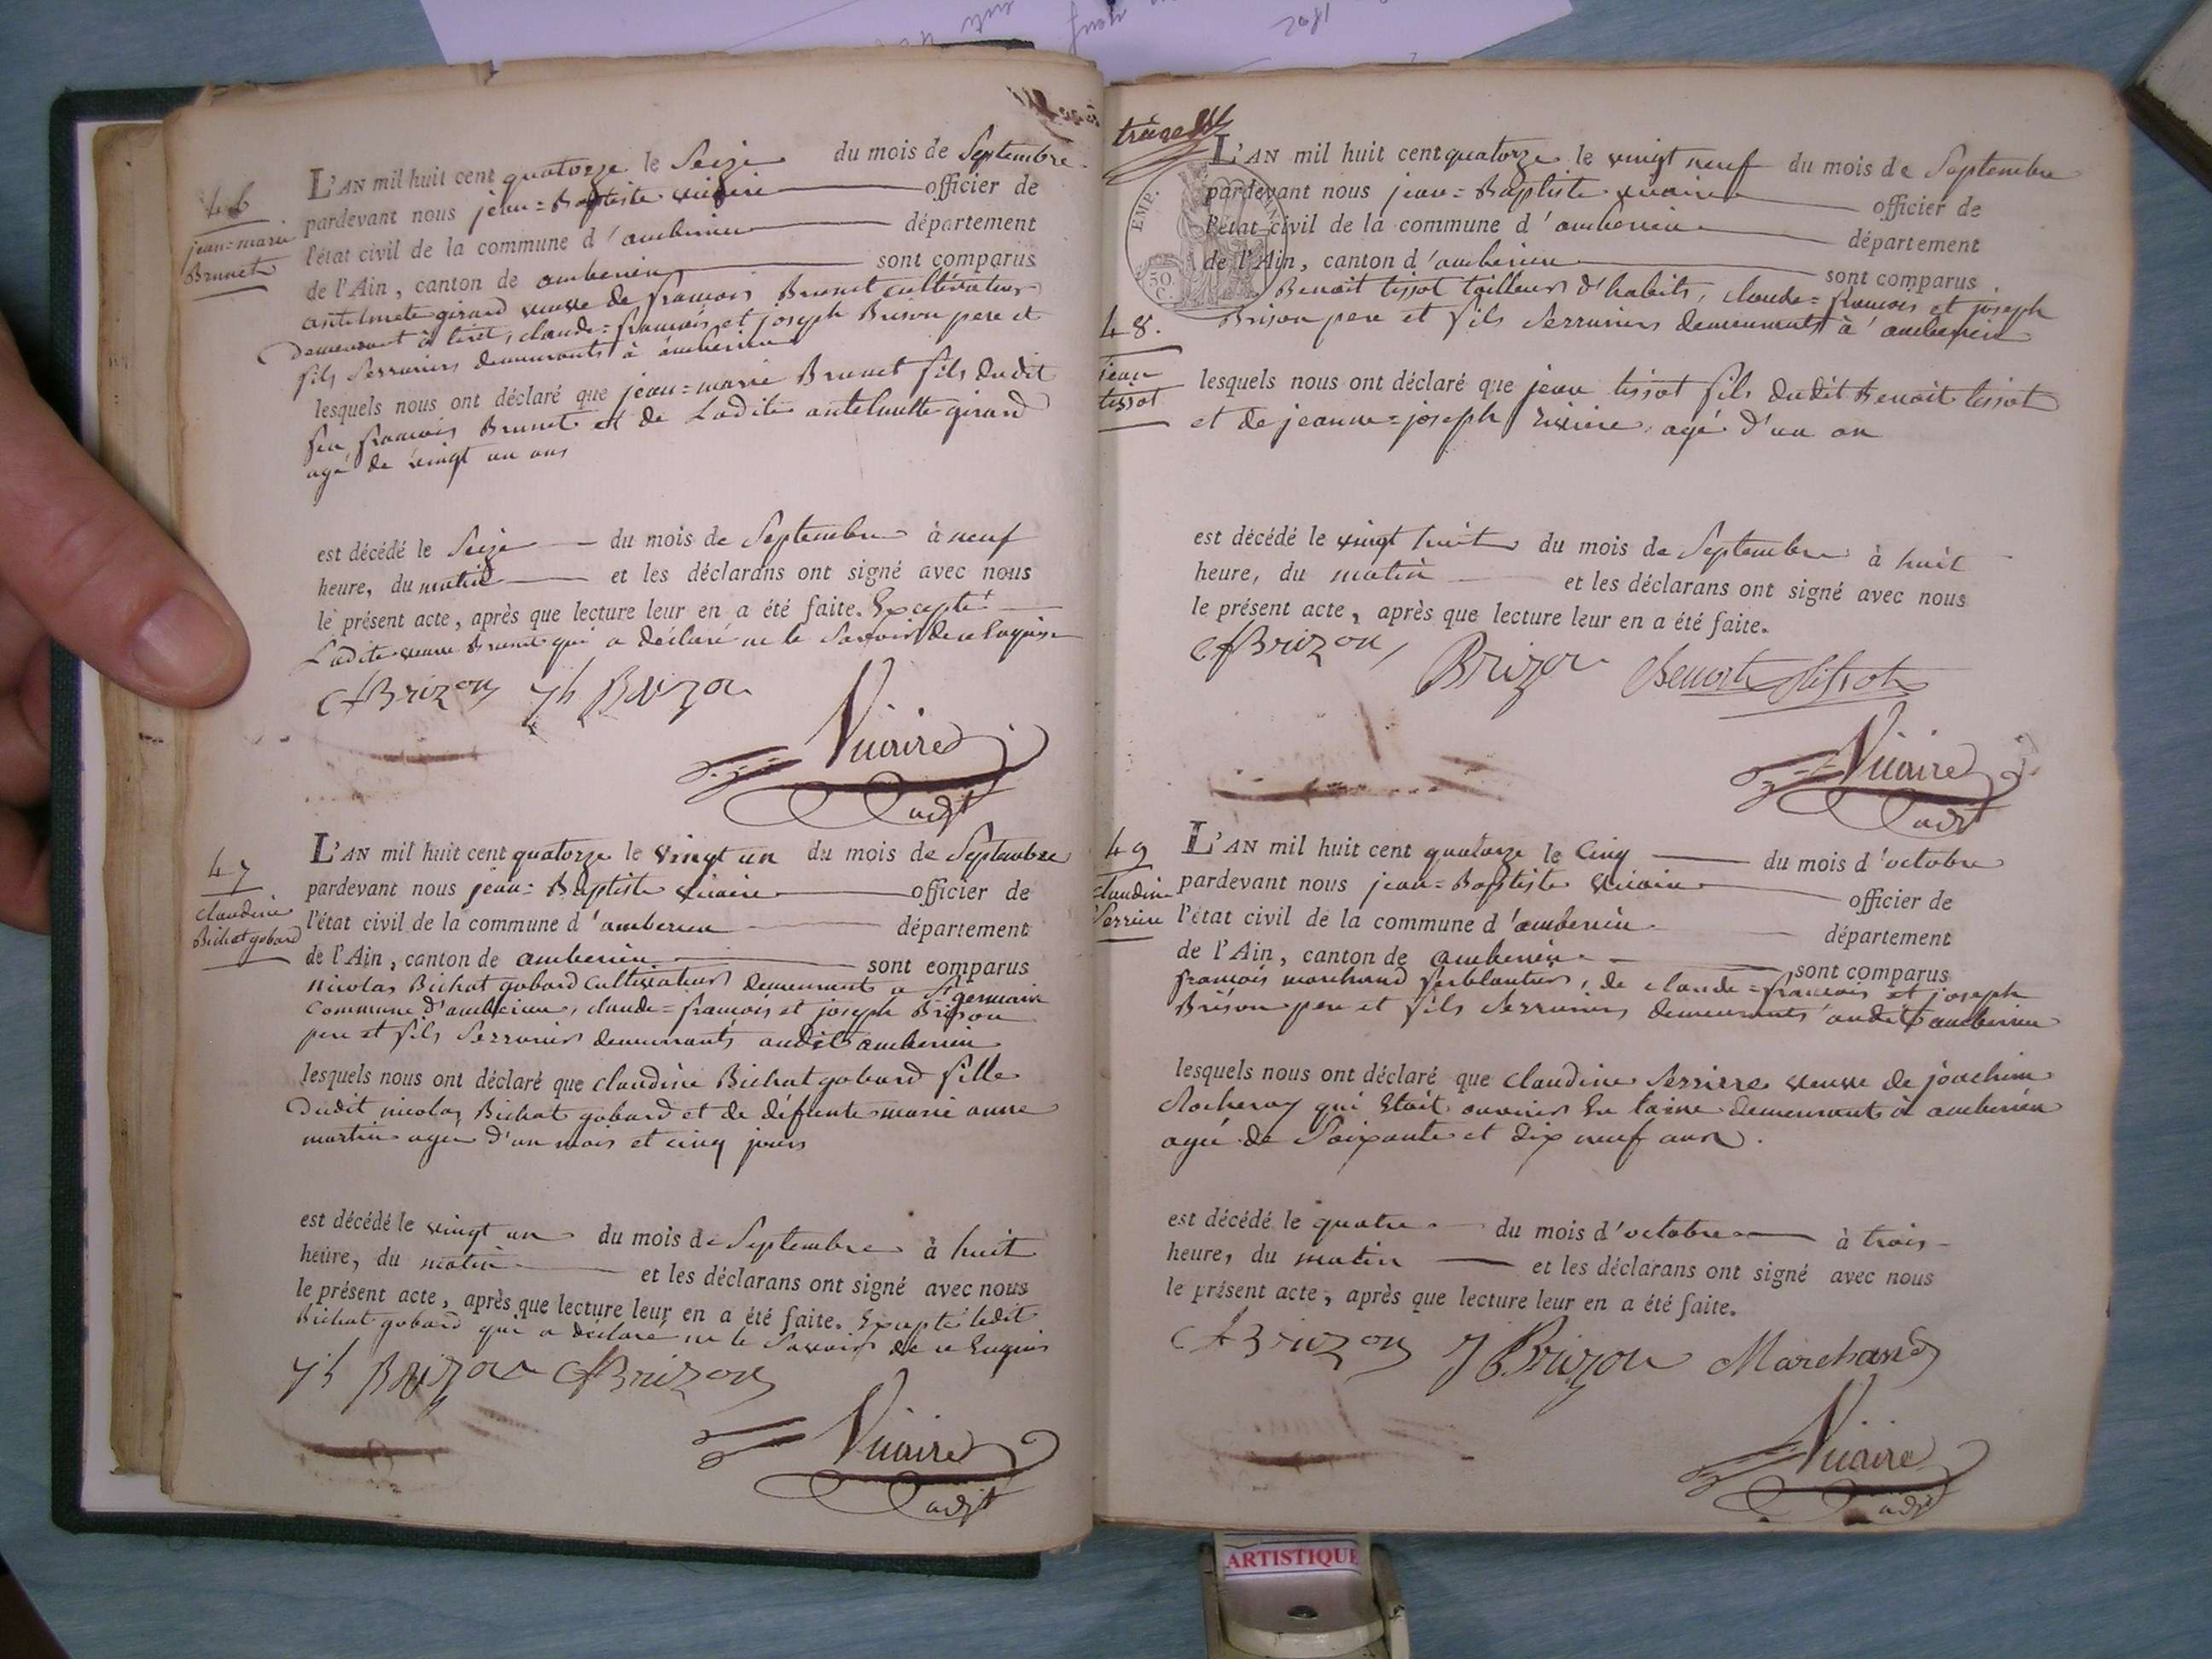 46
jean=marie
Brunet
L'AN mil huit cent quatorze le Seize du mois de Septembre
pardevant nous jean=Baptiste vicaire officier de
l'état civil de la commune d'amberieu département
de l'Ain, canton de amberieu sont comparus
antelmete girard veuve de francois Brunet cultivateur
demeurant à tiret, claude=francois et joseph Brison pere et
fils Serruriers demeurants à amberieu
lesquels nous ont déclaré que jean=marie Brunet fils dudit
feu francois Brunet et de Ladite antelmette girard
agé de vingt un ans
est décédé le Seize du mois de Septembre à neuf
heure, du matin et les déclarans ont signé avec nous
le présent acte, après que lecture leur en a été faite. Excepté
Ladite veuve Brunet qui a déclaré ne le Savoir de ce Enquise
cfBrizon jh Brizon
Vicaire
adjt
47
claudine
Bichat gobard
L'AN mil huit cent quatorze le vingt un du mois de Septembre
pardevant nous jean=Baptiste vicaire officier de
l'état civil de la commune d'amberieu département
de l'Ain, canton de amberieu sont comparus
nicolas Bichat gobard cultivateur demeurant a St germain
commune d'amberieu, claude=francois et joseph Brison
pere et fils Serruriers demeurants audit amberieu
lesquels nous ont déclaré que claudine Bichat gobard fille
dudit nicolas Bichat gobard et de défunte marie anne
martin agée d'un mois et cinq jours
est décédé le vingt un du mois de Septembre à huit
heure, du matin et les déclarans ont signé avec nous
le présent acte, après que lecture leur en a été faite. Excepté ledit
Bichat gobard qui a déclaré ne le Savoir de ce Enquis
jh Brizon cfBrizon
Vicaire
adjt
EMP.
50
C.
48.
jean
tissot
L'AN mil huit cent quatorze le vingt neuf du mois de Septembre
pardevant nous jean=Baptiste vicaire officier de
l'état civil de la commune d'amberieu département
de l'Ain, canton d'amberieu sont comparus
Benoit tissot tailleur d'habits, claude=francois et joseph
Brison pere et fils Serruriers demeurants à amberieu
lesquels nous ont déclaré que jean tissot fils dudit Benoit tissot
et de jeanne=joseph agé d'un an
est décédé le vingt huit du mois de Septembre à huit
heure, du matin et les déclarans ont signé avec nous
le présent acte, après que lecture leur en a été faite.
cfBrizon, Brizon Benoit tissot
Vicaire
adjt
49
claudine
Serriere
L'AN mil huit cent quatorze le Cinq du mois d'octobre
pardevant nous jean=Baptiste vicaire officier de
l'état civil de la commune d'amberieu département
de l'Ain, canton de amberieu sont comparus
francois marchand ferblantier, de claude=francois et joseph
Brison pere et fils Serruriers demeurants audit amberieu
lesquels nous ont déclaré que claudine Serriere veuve de joachim
qui Etait ouvrier En laine demeurant à amberieu
agée de Soixante et dix neuf ans.
est décédé le quatre du mois d'octobre à trois
heure, du matin et les déclarans ont signé avec nous
le présent acte, après que lecture leur en a été faite.
cfBrizon J Brizon Marchand
Vicaire
adjt
ARTISTIQUE